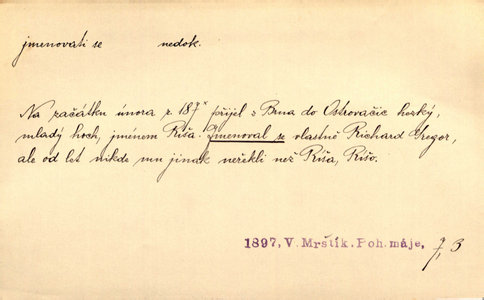 jmenovati se nedok.
Na začátku února r. 187* přijel s Brna do Ostrovačic hezký,
mladý hoch, jménem Ríša. Jmenoval se vlastně Richard Gregor,
ale od let nikde mu jinak neřekli než Ríša, Ríšo.
1897, V. Mrštík. Poh. máje, 7, 3